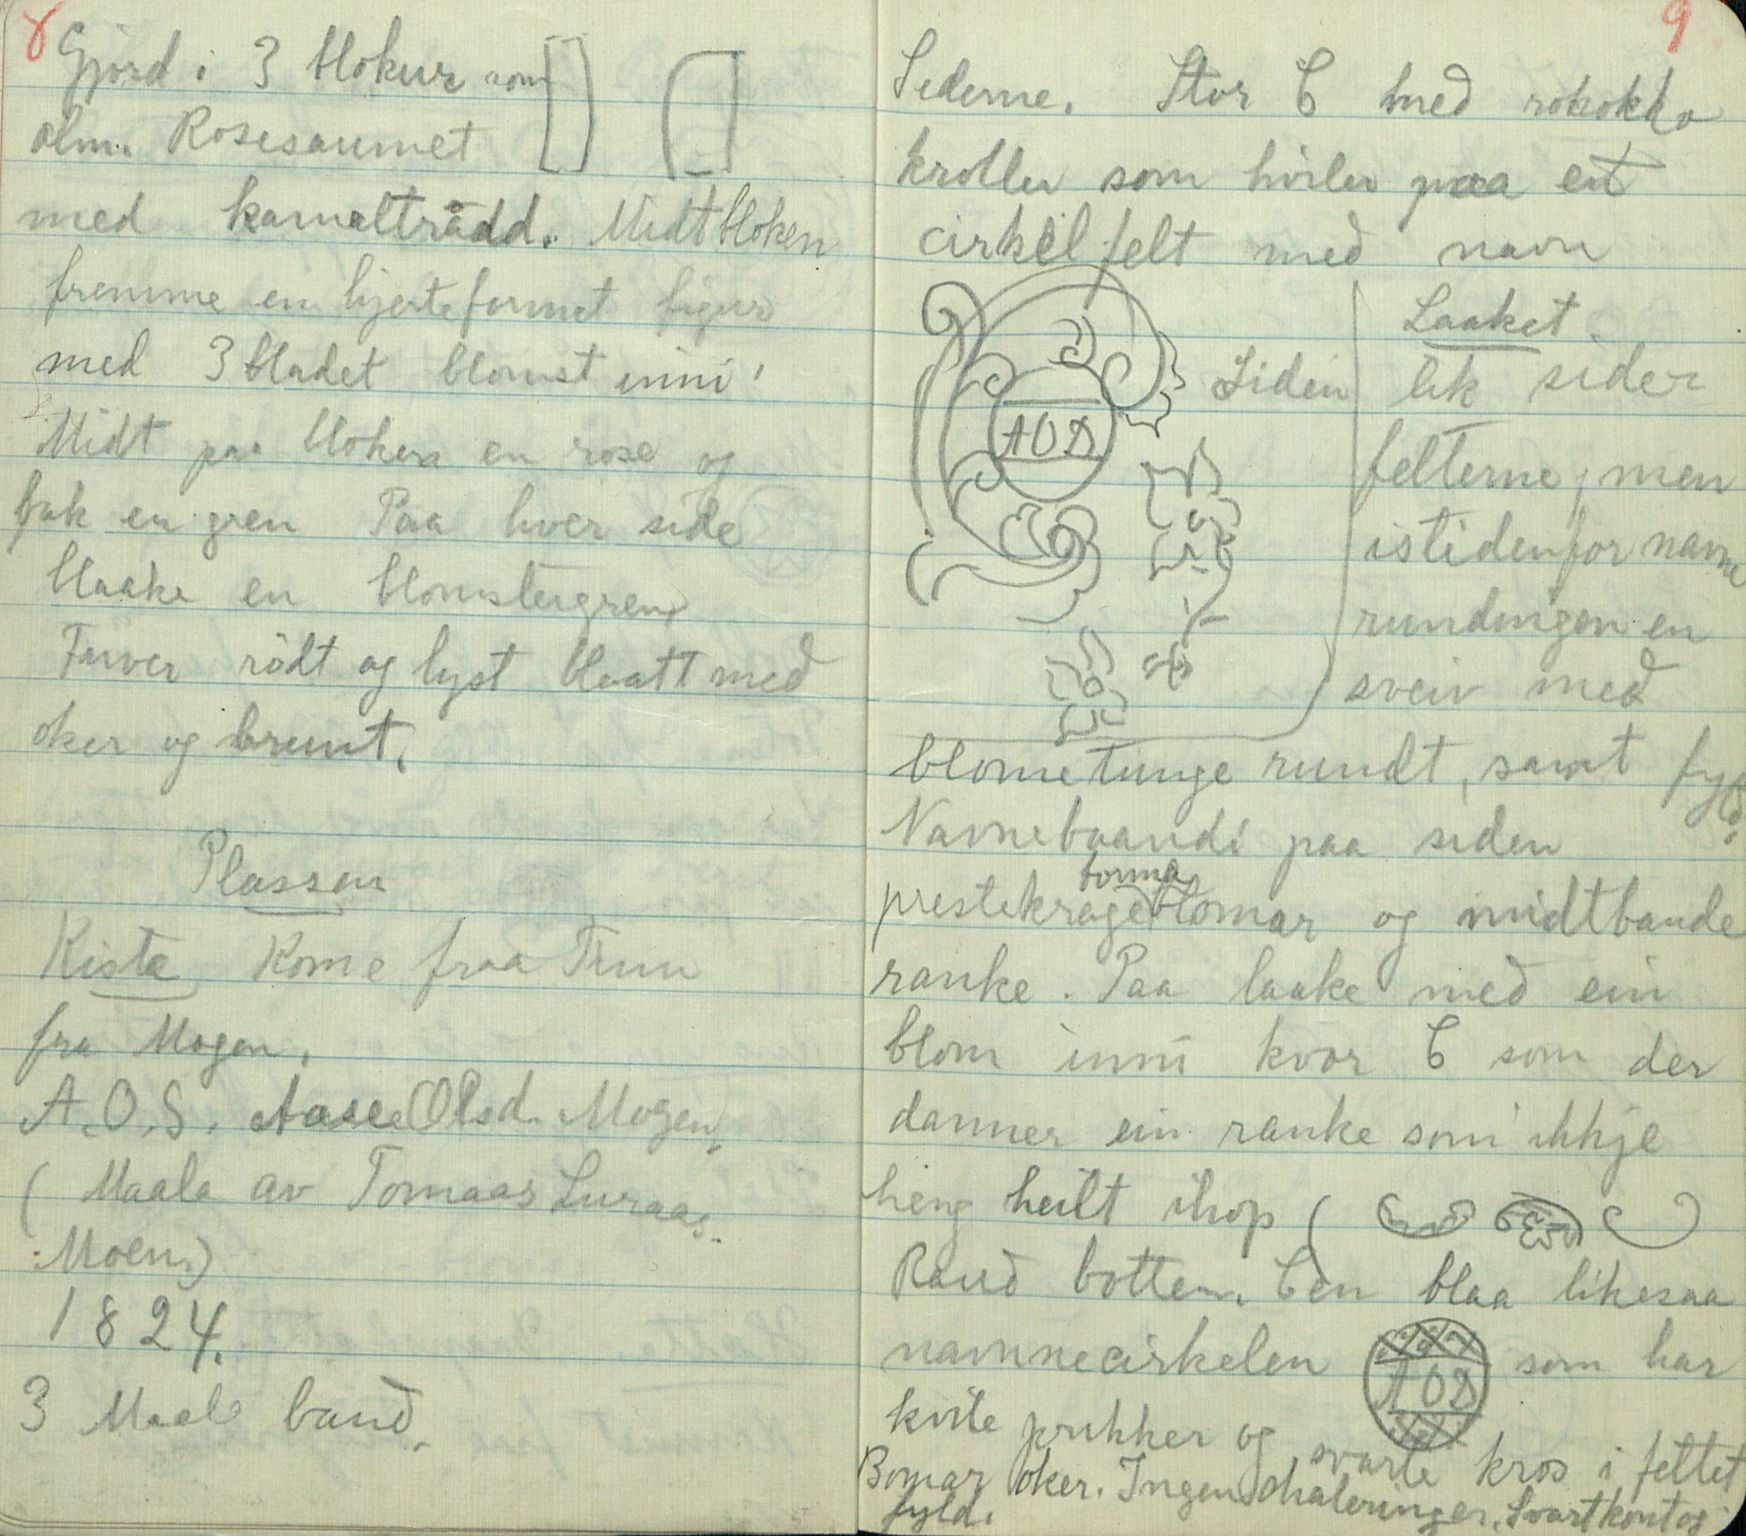 8
Gjord i 3 blokur som
alm. Rosesaumet
med kamelträdd. Midtbloken
fremme en hjerteformet figur
med 3 bladet blomst inni.
Midt paa bloken en rose og
bak en gren Paa hver side
blaake en blomstergren,
Farver rödt og lyst blaatt med
oker og brunt.
Plassen
Kiste Kome fraa Tinn
fra Mogen.
A.O.S. Aase Olsd. Mogen,
(Maala av Tomaas Luraas.
Moen.)
1824.
3 Maala band.
9
Siderne. Stor C med rokokko
kroller som hviler paa et
cirkel felt med navn
AOD
Siden
Laaket
lik sider
felterne, men
istidenfor navne
rundingen en
sveiv med
blometunge rundt, samt fyld.
Navnebaandi paa siden
prestekrage forma blomar og midtbande
ranke. Paa laake med ein
blom inni kvar C som der
danner ein ranke som ikkje
heng heilt ihop (
Raud botten. Cen blaa likesaa
namnecirkelen AOD som har
kvite prikker og svarte kros i feltet
Bomar oker. Ingen skaleringer. Svart kont og
fyld.